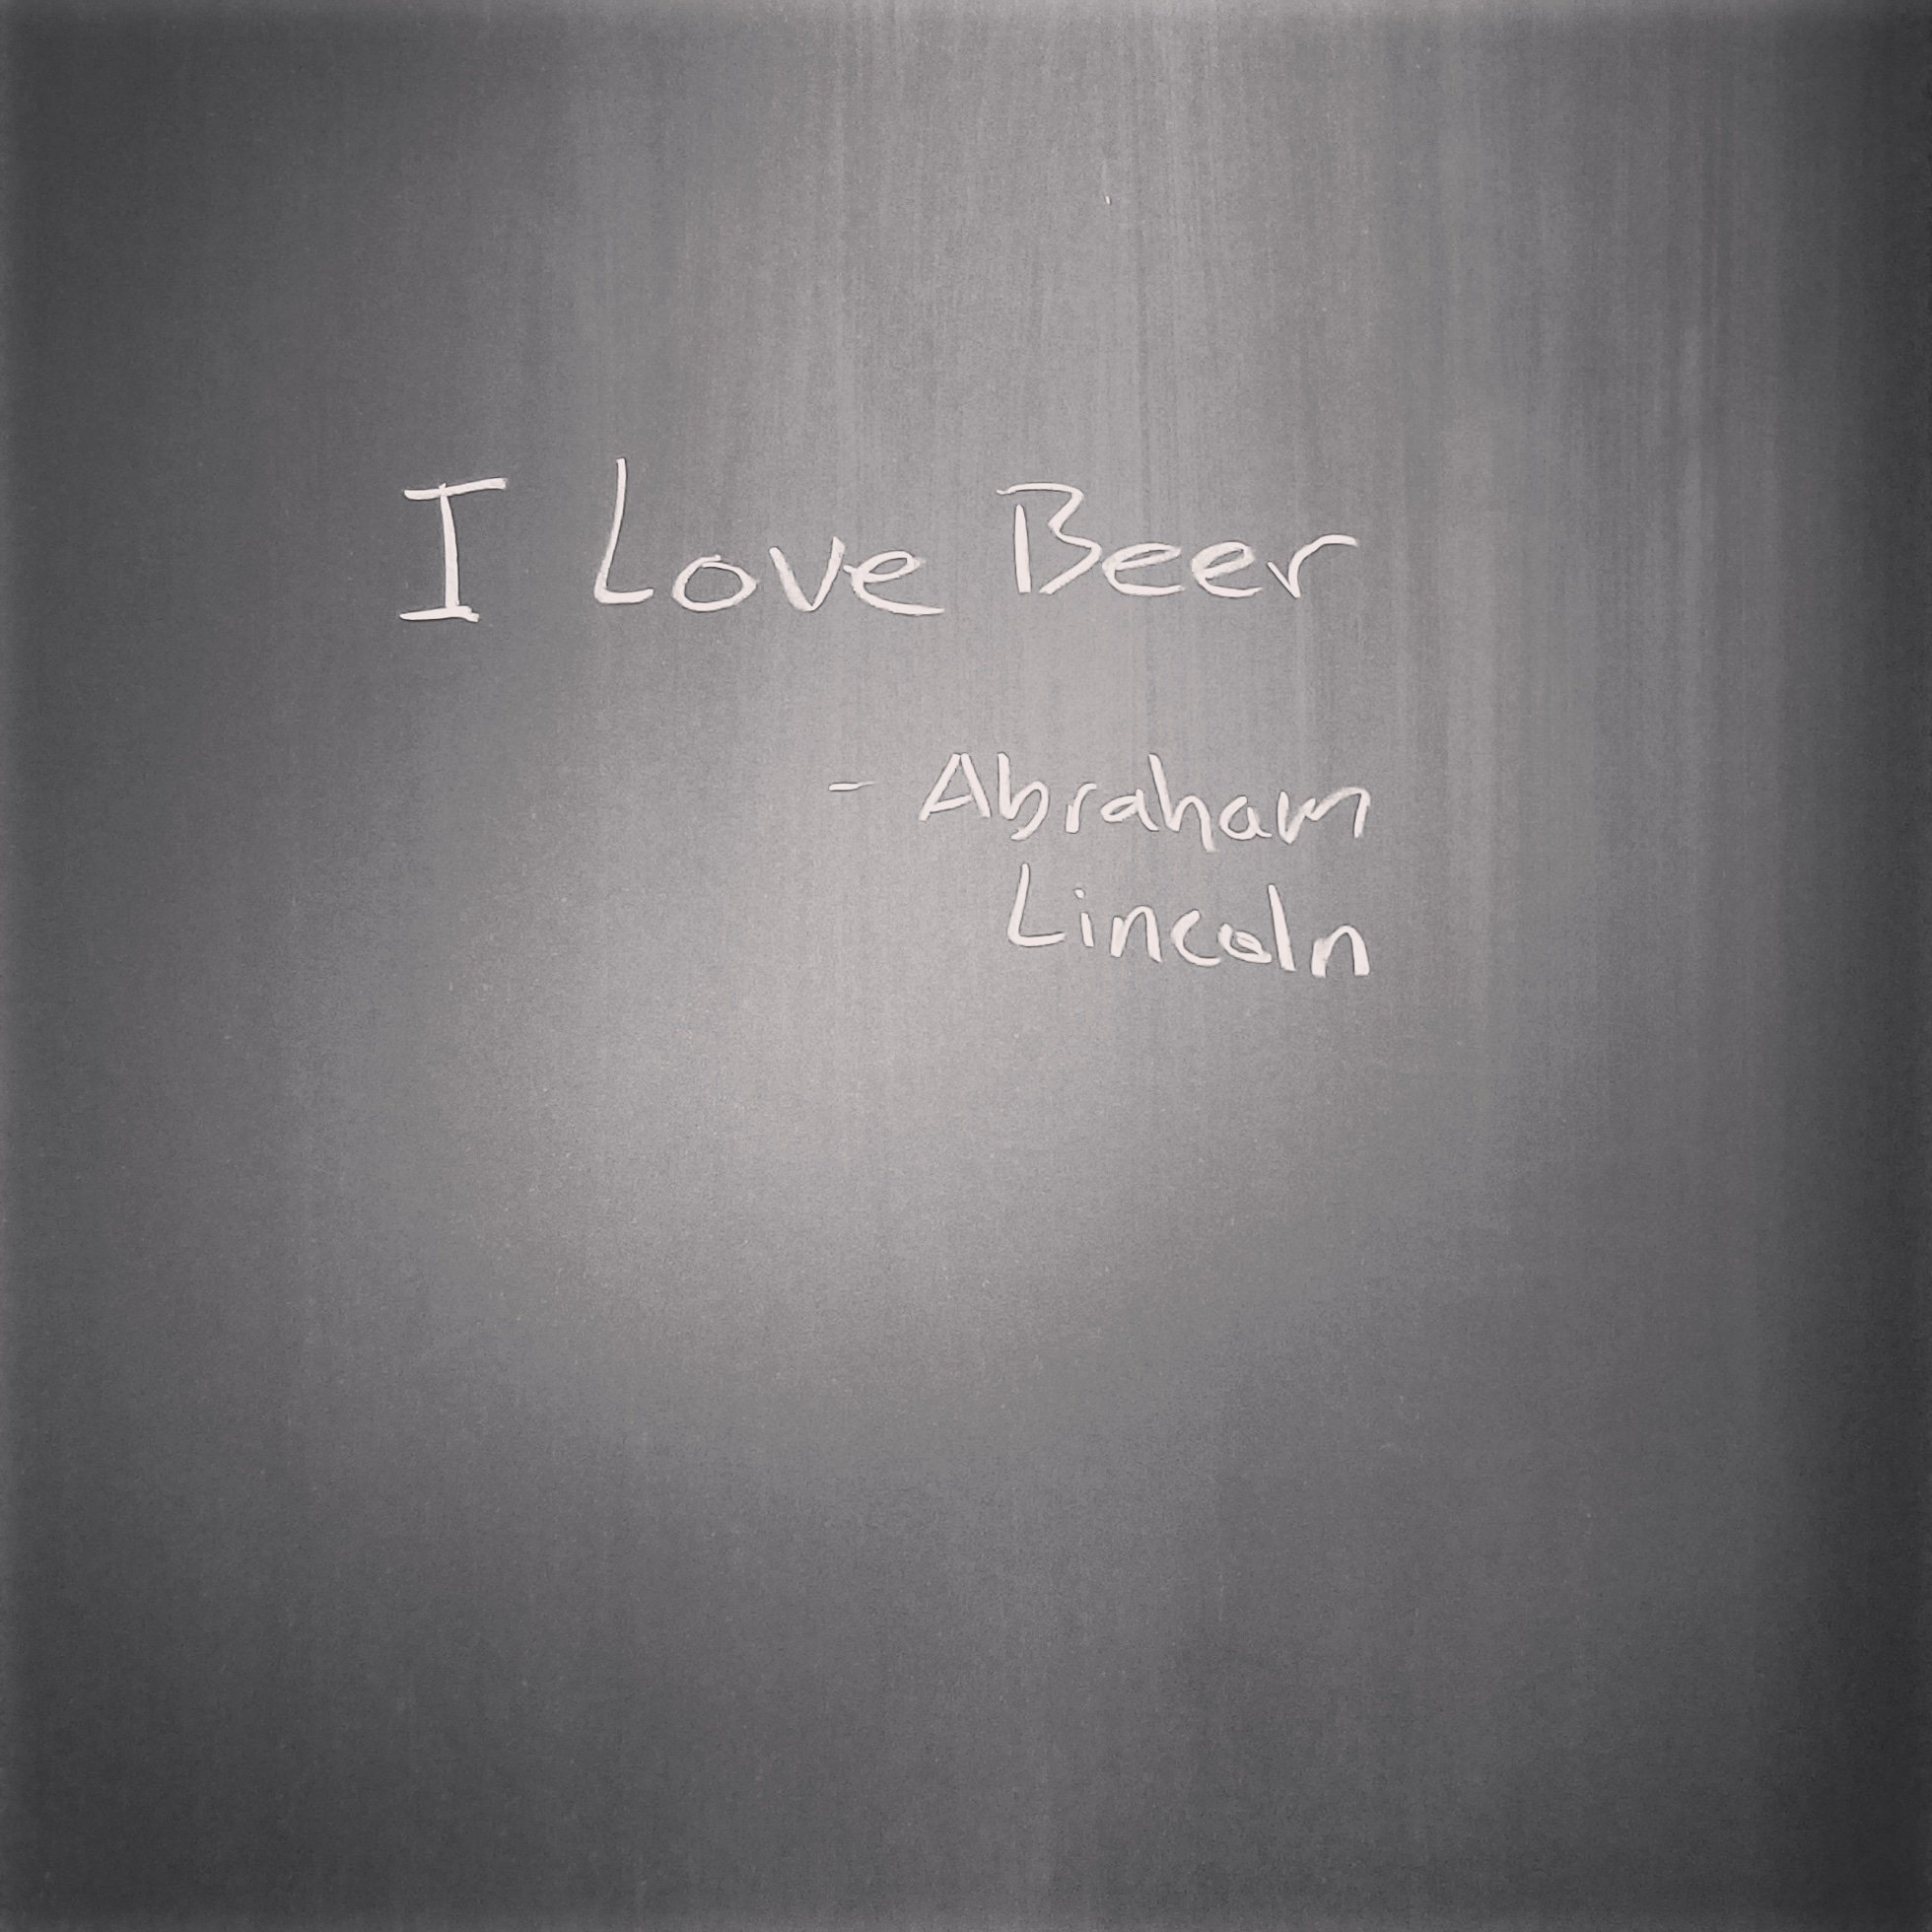 I Love Beer
- Abraham
Lincoln